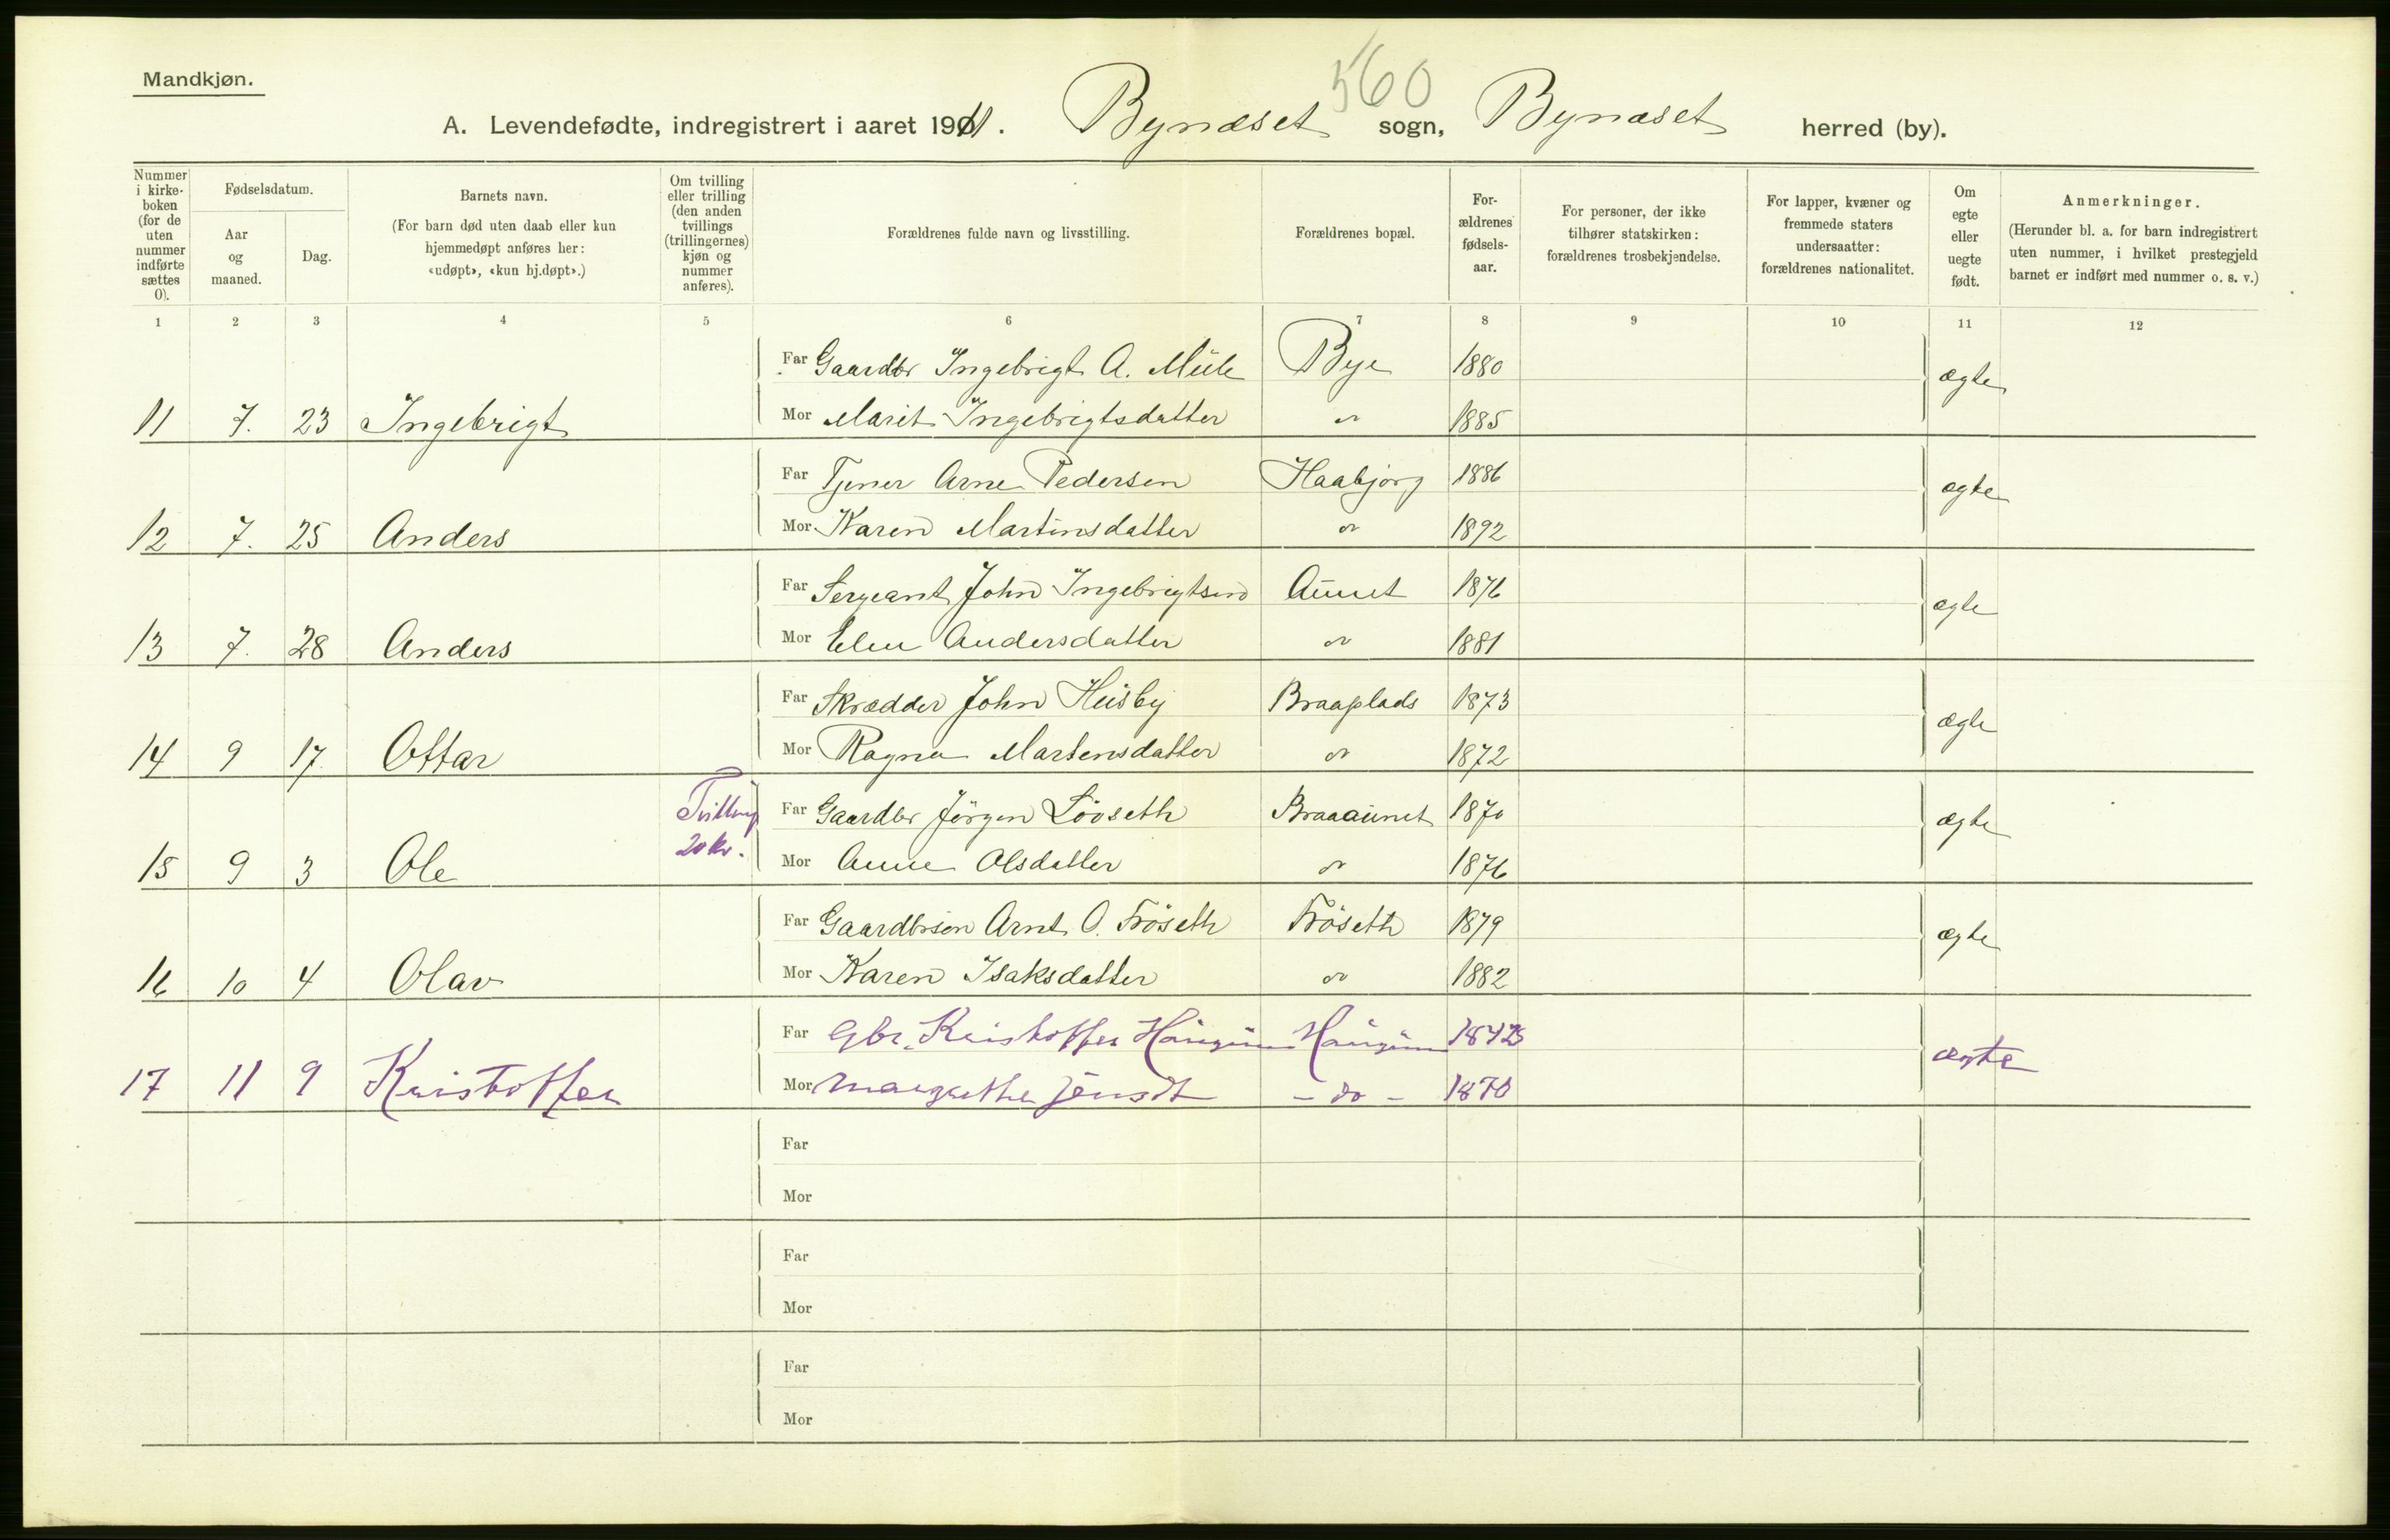 Mandkjøn.
560
A. Levendefødte, indregistrert i aaret 1911. Bynæset sogn, Bynæset herred (by).
Nummer i kirkeboken (for de uten nummer indførte sættes 0).
Fødselsdatum.
Aar og maaned.
Dag.
Barnets navn.
(For barn død uten daab eller kun hjemmedøpt anføres her: «udøpt», «kun hj.døpt».)
Om tvilling eller trilling (den anden tvillings (trillingernes) kjøn og nummer anføres).
Forældrenes fulde navn og livsstilling.
Forældrenes bopæl.
Forældrenes fødselsaar.
For personer, der ikke tilhører statskirken: forældrenes trosbekjendelse.
For lapper, kvæner og fremmede staters undersaatter: forældrenes nationalitet.
Om egte eller uegte født.
Anmerkninger.
(Herunder bl. a. for barn indregistrert uten nummer, i hvilket prestegjeld barnet er indført med nummer o. s. v.)
1 2 3 4 5 6 7 8 9 10 11 12
Far Gaardbr Ingebrigt A. Mule Bye 1880 ægte
11 7. 23 Ingebrigt Mor Marit Ingebrigtsdatter do 1885
Far Tjener Arne Pedersen Haabjørg 1886 ægte
12 7. 25 Anders Mor Karen Martinsdatter do 1892
Far Sergeant John Ingebrigtsen Aunet 1876 ægte
13 7. 28 Anders Mor Elen Andersdatter do 1881
Far Skrædder John Husby Braaplads 1873 ægte
14 9 17 Ottar Mor Ragna Martensdatter do 1872
Tvilling Far Gaardbr Jörgen Lööseth Braaaunet 1870 ægte
20 kv.
15 9 3 Ole Mor Anne Olsdatter do 1876
Far Gaardbrsön Arnt O. Fröseth Fröseth 1879 ægte
16 10 4 Olav Mor Karen Isaksdatter do 1882
Far Gbr. Kristoffer Haugum Haugum ægte
17 11 9 Kristoffer Mor Margrethe Jensdt - do - 1870
Far
Mor
Far
Mor
Far
Mor